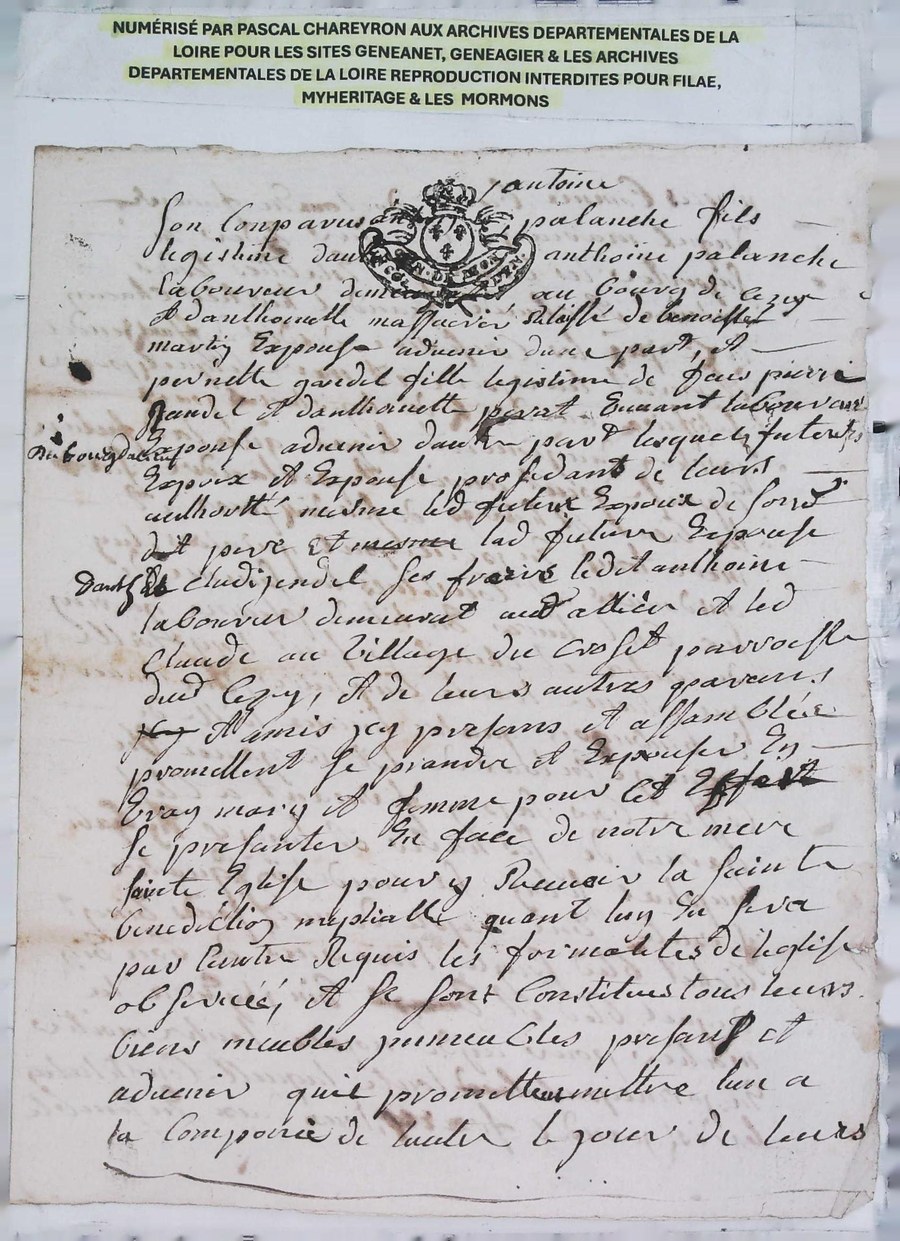 NUMÉRISÉ PAR PASCAL CHAREYRON AUX ARCHIVES DEPARTEMENTALES DE LA
LOIRE POUR LES SITES GENEANET, GENEAGIER & LES ARCHIVES
DEPARTEMENTALES DE LA LOIRE REPRODUCTION INTERDITES POUR FILAE,
MYHERITAGE & LES MORMONS
antoine
son Conparus palanche fils
legistime anthoine palanche
Laboureur au bourg de
Et danthoinette de benoiste
martin Expouse aduenir dune part, Et
pernelle gaudel fille legistime de feus pierre
gaudel Et danthoinette viuant laboureur
du bourg Expouse aduenir dautre part lesquels futeurs
Expoux Et Expouse prosedants de leurs
authorité mesme led futeur Expoux de sond
dit pere Et lad future Expouse
ses freres ledit anthoine
laboureur demeurat allier Et led
Claude au Village du croset parroisse
dud Cezy, Et de leurs autres parans
Et amis jcy presans Et assamblés
promettent se prandre et Expouser En
Vray mary Et femme pour cet Effait
se presanter En face de notre mere
sainte Eglise pour y Receuoir la sainte
benediction nuptialle quant lun En sera
par lautre Requis les formalites de leglise
obseruéé, Et se sont Constitues tous leurs
biens meubles jmmeubles presant et
aduenir quil promettent mettre lun a
la Companiè de lautre le jour de leurs